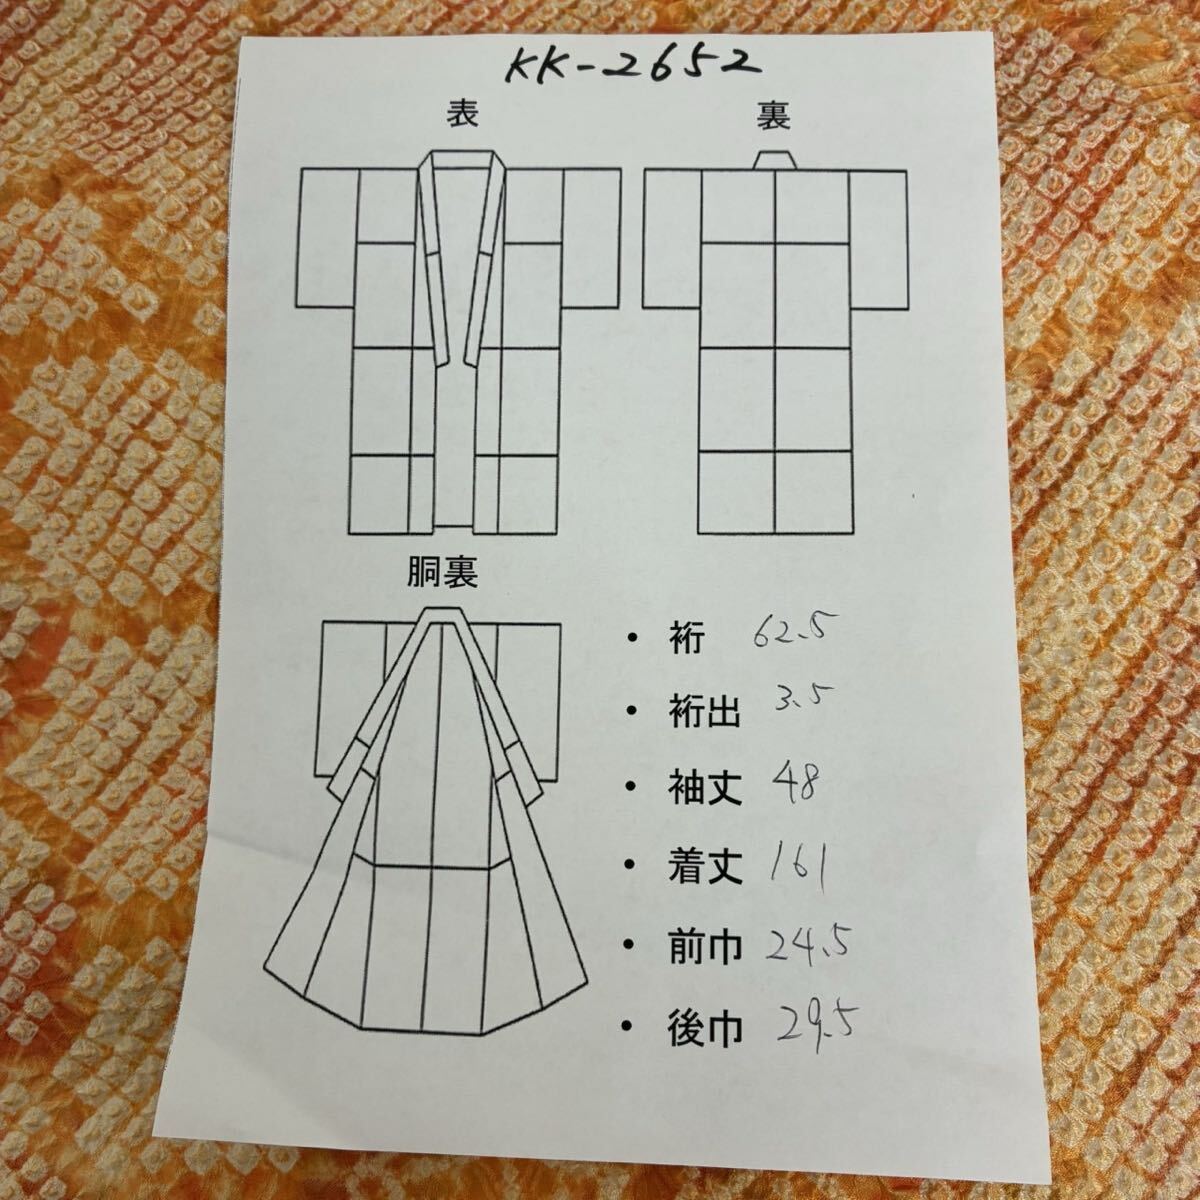 KK-2652
表 裏
胴裏
・裄 62.5
・裄出 3.5
・袖丈 48
・着丈 161
・前巾 24.5
・後巾 29.5